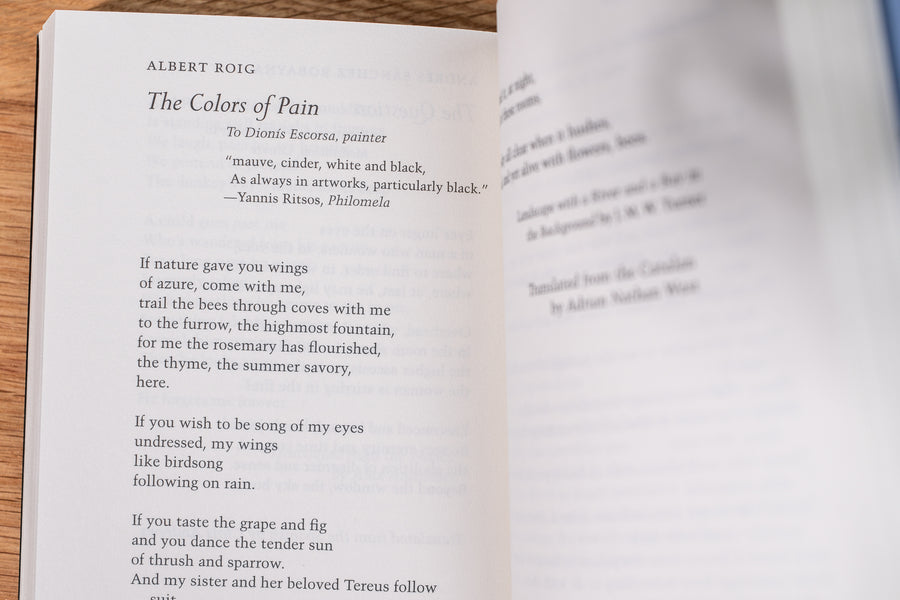 ALBERT ROIG
The Colors of Pain
To Dionís Escorsa, painter
“mauve, cinder, white and black,
As always in artworks, particularly black.”
—Yannis Ritsos, Philomela
If nature gave you wings
of azure, come with me,
trail the bees through coves with me
to the furrow, the highmost fountain,
for me the rosemary has flourished,
the thyme, the summer savory,
here.
If you wish to be song of my eyes
undressed, my wings
like birdsong
following on rain.
If you taste the grape and fig
and you dance the tender sun
of thrush and sparrow.
And my sister and her beloved Tereus follow
suit
at night,
these rooms,
all clear when it hushes,
alive with flowers, bees.
Landscape with a River and a Bay in
the Background by J. M. W. Turner
Translated from the Catalan
by Adrian Nathan West